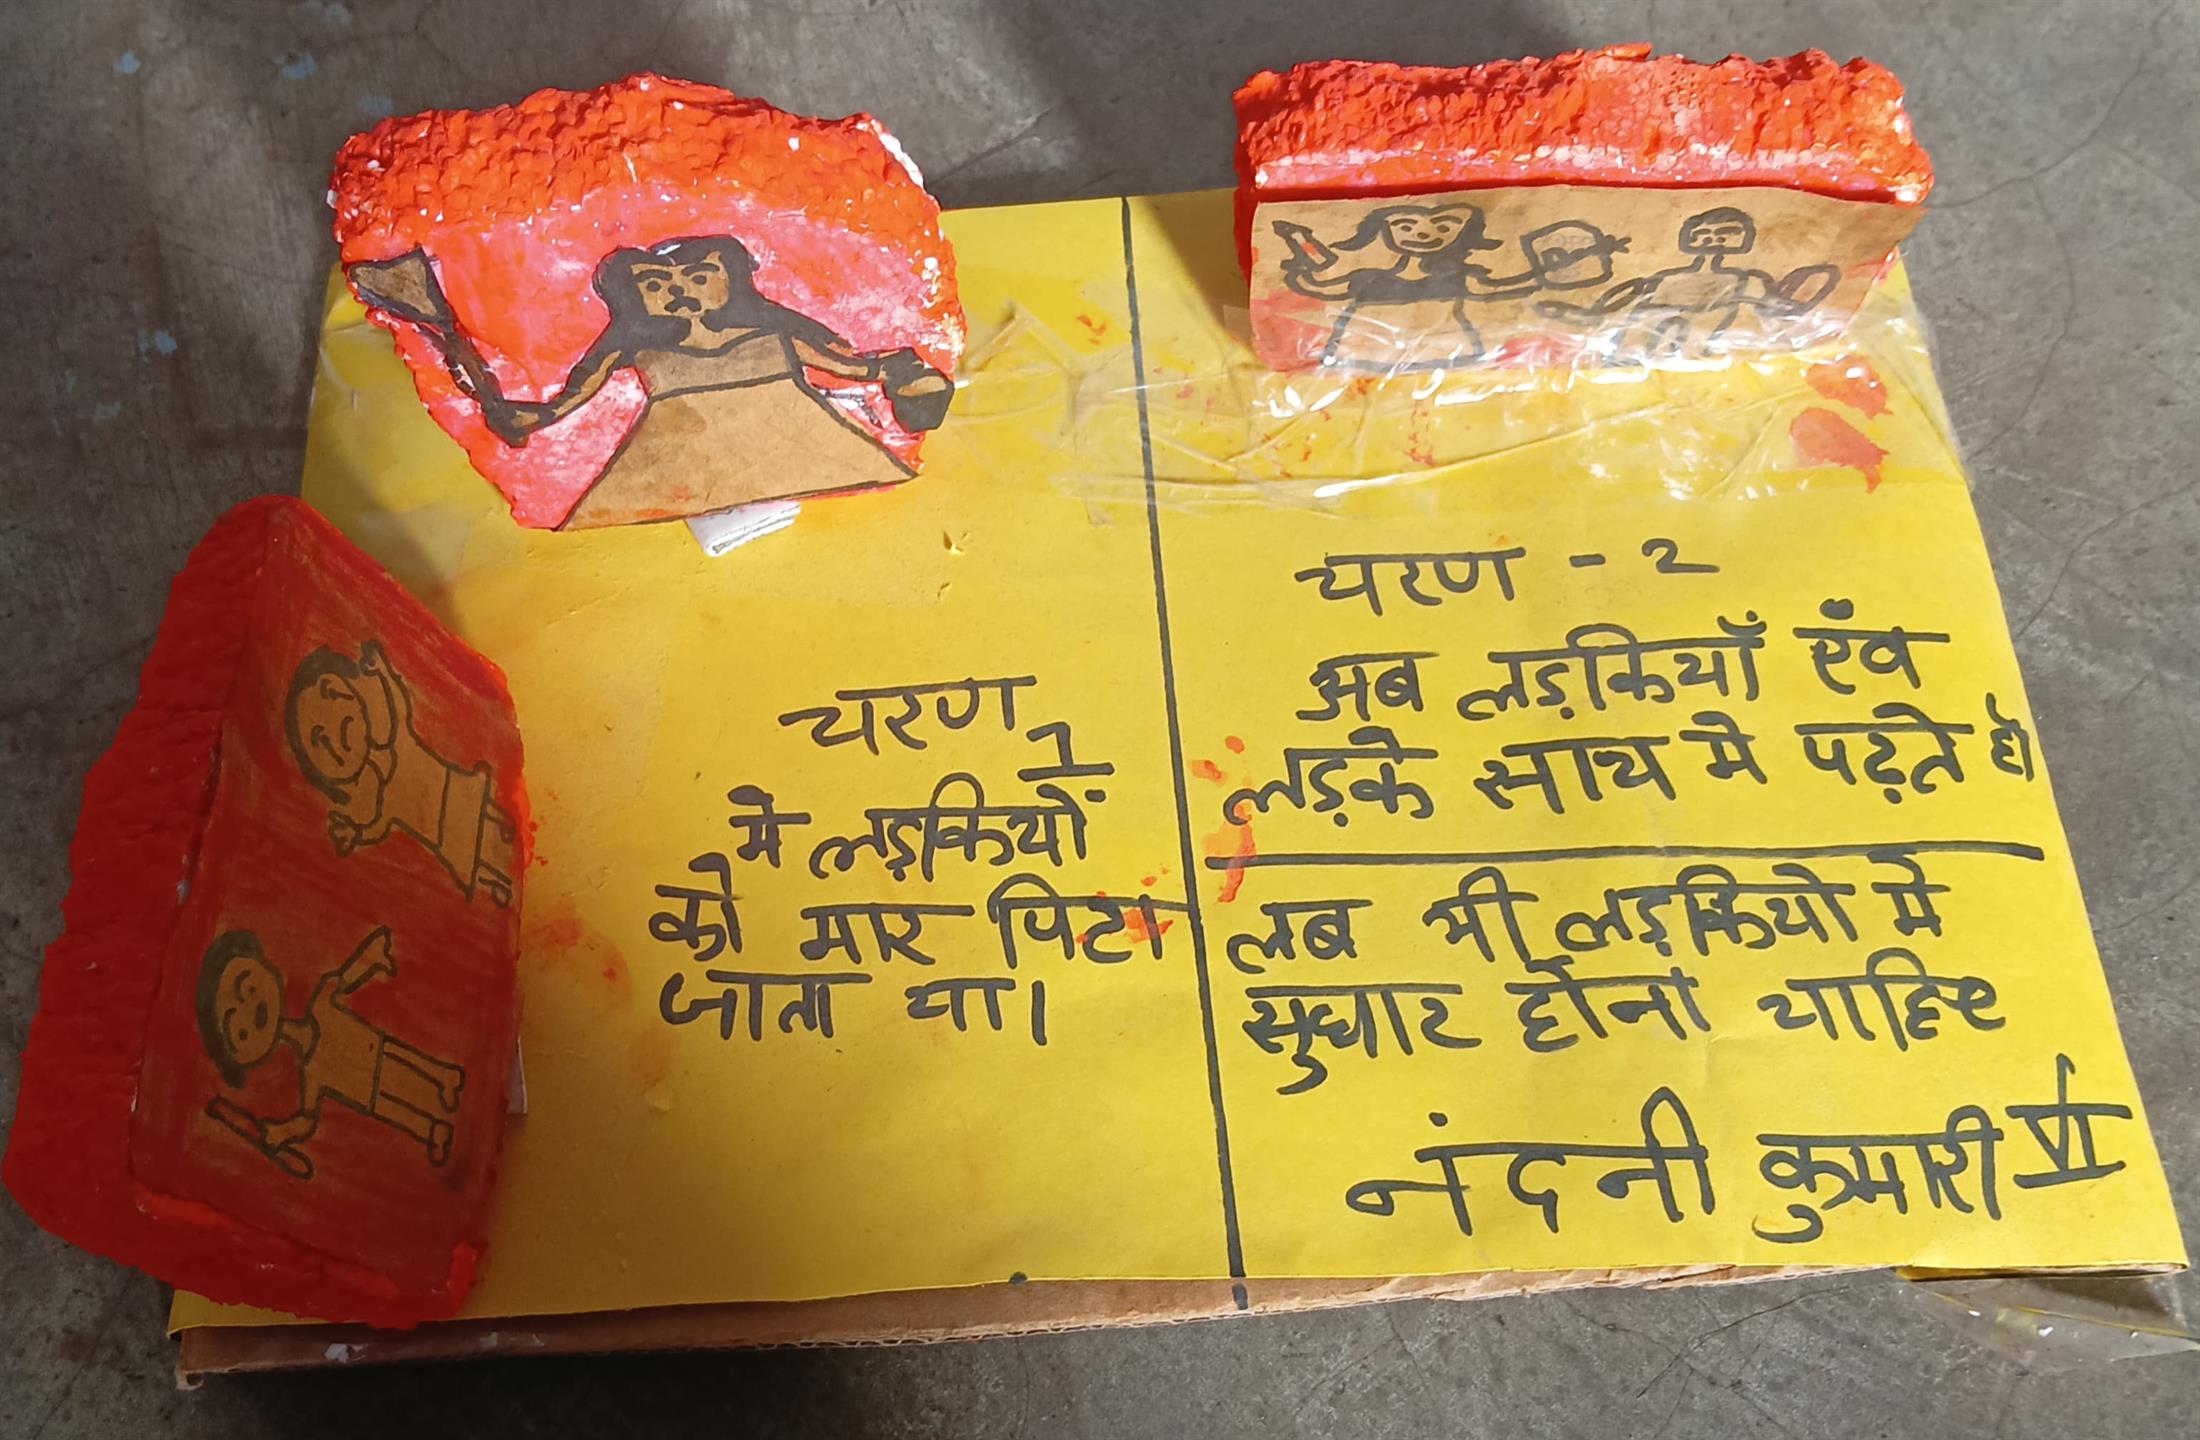 चरण 1
में लड़कियों
को मार पिटा
जाता था।
चरण - 2
अब लड़कियाँ एंव
लड़के साथ मे पढ़ते हैं
लब भी लड़कियो मे
सुधार होना चाहिए
नंदनी कुमारी VI